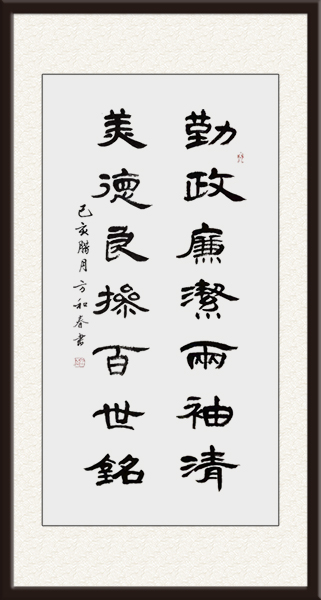 勤政廉潔兩袖清
美德良操百世銘
己亥腊月方和春書